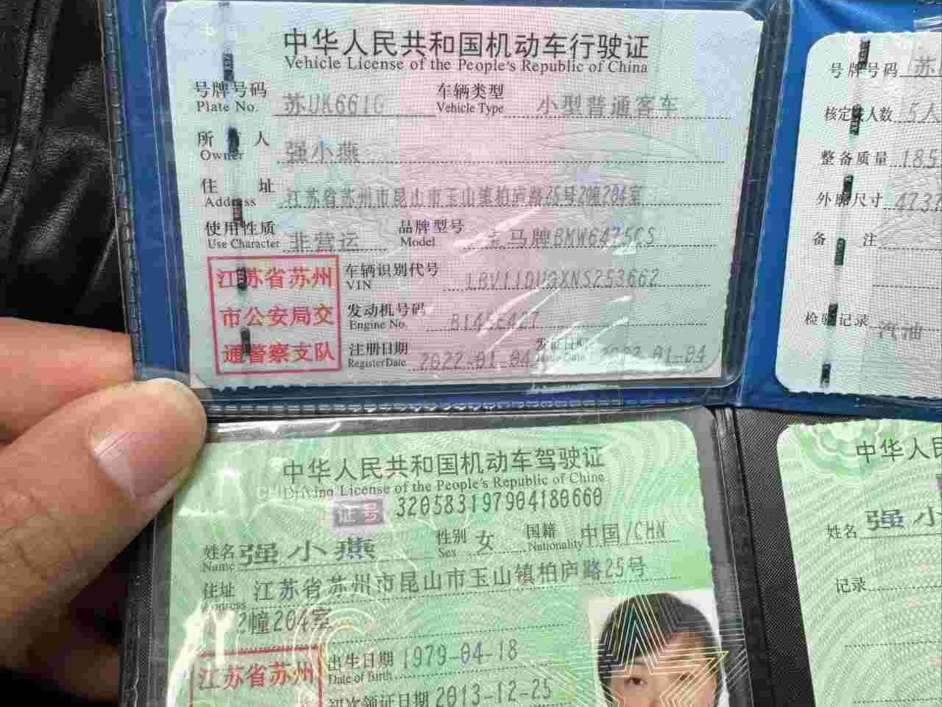 中华人民共和国机动车行驶证
Vehicle License of the People's Republic of China
号牌号码 Plate No. 苏UK661G 车辆类型 Vehicle Type 小型普通客车
所 人 Owner 强小燕
住 址 Address 江苏省苏州市昆山市玉山镇柏庐路25号2幢204室
使用性质 Use Character 非营运 品牌型号 Model 马牌BMW6475CS
江苏省苏州
市公安局交
通警察支队
车辆识别代号 VIN
发动机号码 Engine No.
注册日期 Register Date 2022-01-04 发证日期 Issue Date 01-04
号牌号码 苏
核定 人数 5人
整备质量 185
外廓尺寸 4737
备 注
检验记录 汽油
中华人民共和国机动车驾驶证
Driving License of the People's Republic of China
证号 320583197904180660
姓名 Name 强小燕 性别 Sex 女 国籍 Nationality 中国/CHN
住址 Address 江苏省苏州市昆山市玉山镇柏庐路25号
2幢204室
江苏省苏州
出生日期 Date of Birth 1979-04-18
初次领证日期 2013-12-25
中华人民
姓名 强小
记录